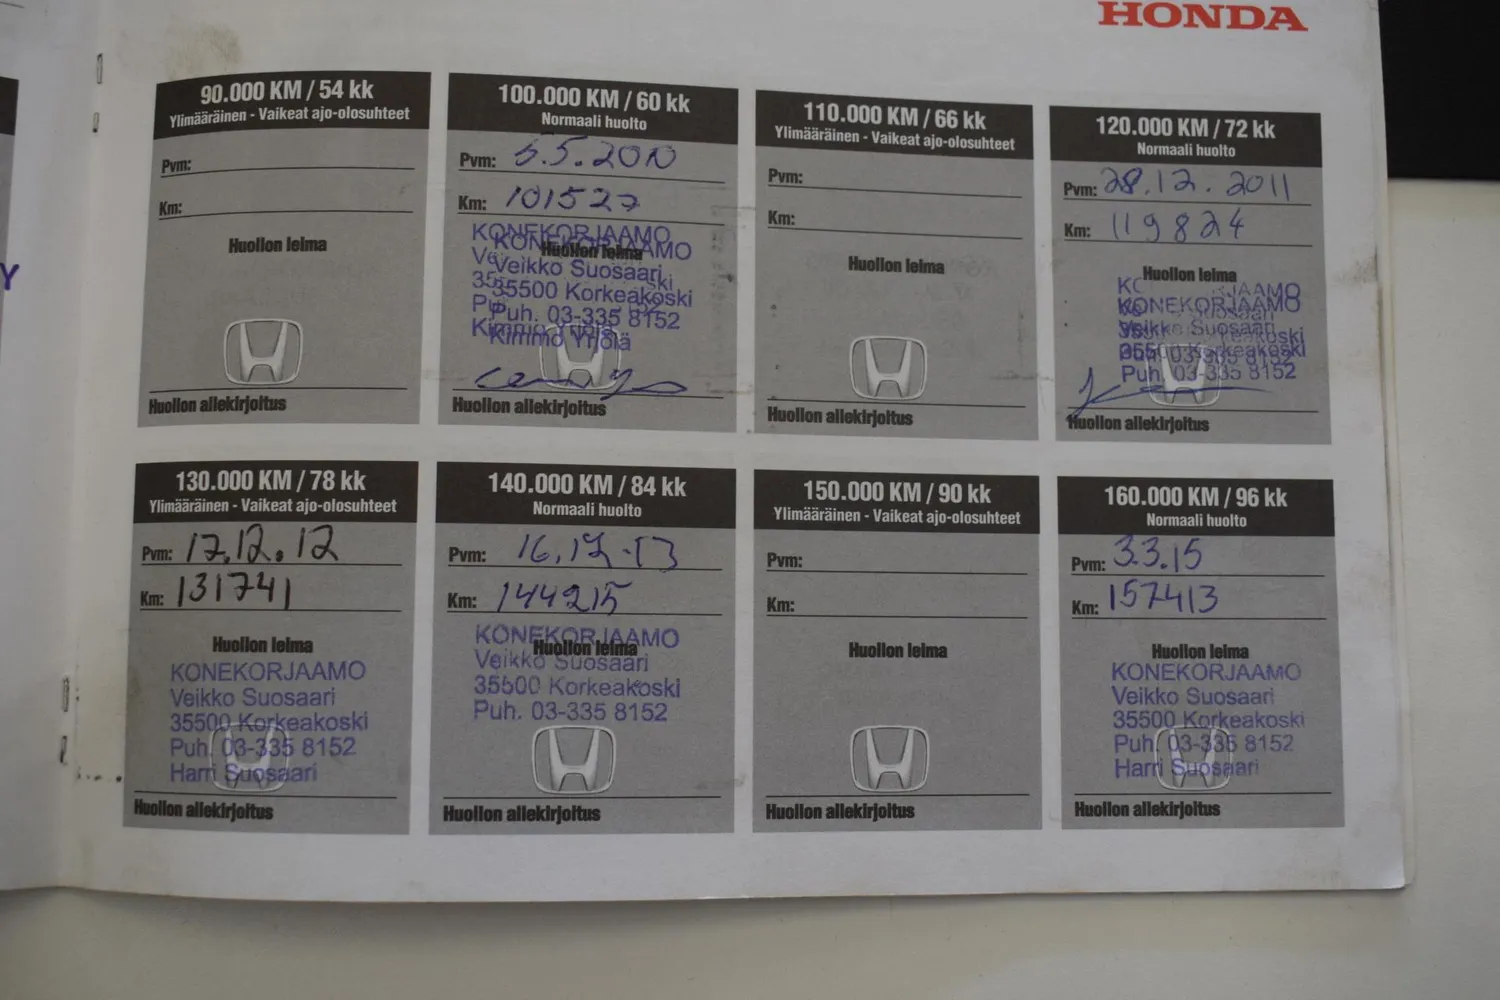 HONDA
90.000 KM / 54 kk
Ylimääräinen - Vaikeat ajo-olosuhteet
Pvm:
Km:
Huollon leima
Huollon allekirjoitus
100.000 KM / 60 kk
Normaali huolto
Pvm: 5.5.2010
Km: 101527
Huollon leima
KONEKORJAAMO
Veikko Suosaari
35500 Korkeakoski
Puh. 03-335 8152
Kimmo Yrjölä
Huollon allekirjoitus
110.000 KM / 66 kk
Ylimääräinen - Vaikeat ajo-olosuhteet
Pvm:
Km:
Huollon leima
Huollon allekirjoitus
120.000 KM / 72 kk
Normaali huolto
Pvm: 28.12.2011
Km: 119824
Huollon leima
KONEKORJAAMO
Veikko Suosaari
35500 Korkeakoski
Puh. 03-335 8152
Huollon allekirjoitus
130.000 KM / 78 kk
Ylimääräinen - Vaikeat ajo-olosuhteet
Pvm: 17.12.12
Km: 131741
Huollon leima
KONEKORJAAMO
Veikko Suosaari
35500 Korkeakoski
Puh. 03-335 8152
Harri Suosaari
Huollon allekirjoitus
140.000 KM / 84 kk
Normaali huolto
Pvm: 16.12.13
Km: 144215
Huollon leima
KONEKORJAAMO
Veikko Suosaari
35500 Korkeakoski
Puh. 03-335 8152
Huollon allekirjoitus
150.000 KM / 90 kk
Ylimääräinen - Vaikeat ajo-olosuhteet
Pvm:
Km:
Huollon leima
Huollon allekirjoitus
160.000 KM / 96 kk
Normaali huolto
Pvm: 3.3.15
Km: 157413
Huollon leima
KONEKORJAAMO
Veikko Suosaari
35500 Korkeakoski
Puh. 03-335 8152
Harri Suosaari
Huollon allekirjoitus